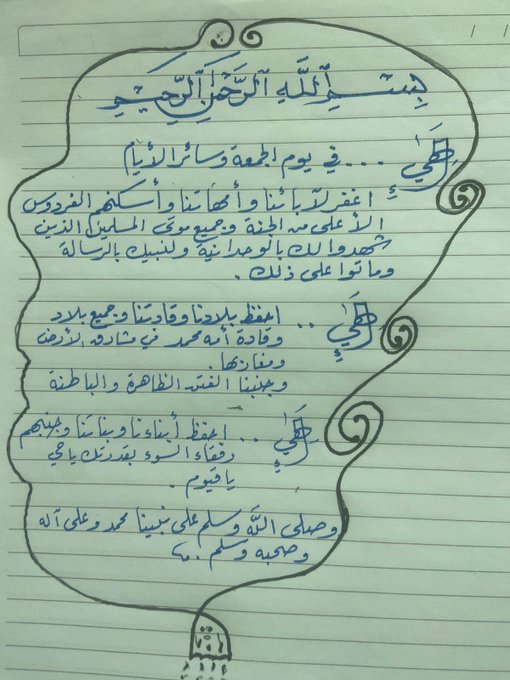 بسم الله الرحمن الرحيم
إلهي ... في يوم الجمعة وسائر الأيام
اغفر لآبائنا وأمهاتنا وأسكنهم الفردوس
الأعلى من الجنة وجميع موتى المسلمين الذين
شهدوا لك بالوحدانية ولنبيك بالرسالة
وماتوا على ذلك .
إلهي .. احفظ بلادنا وقادتنا وجميع بلاد
وقادة أمة محمد في مشارق الأرض
ومغاربها .
وجنبنا الفتن الظاهرة والباطنة
إلهي .. احفظ أبناءنا وبناتنا وجنبهم
رفقاء السوء بقدرتك يا حي
يا قيوم .
وصلى الله وسلم على نبينا محمد وعلى آله
وصحبه وسلم ..